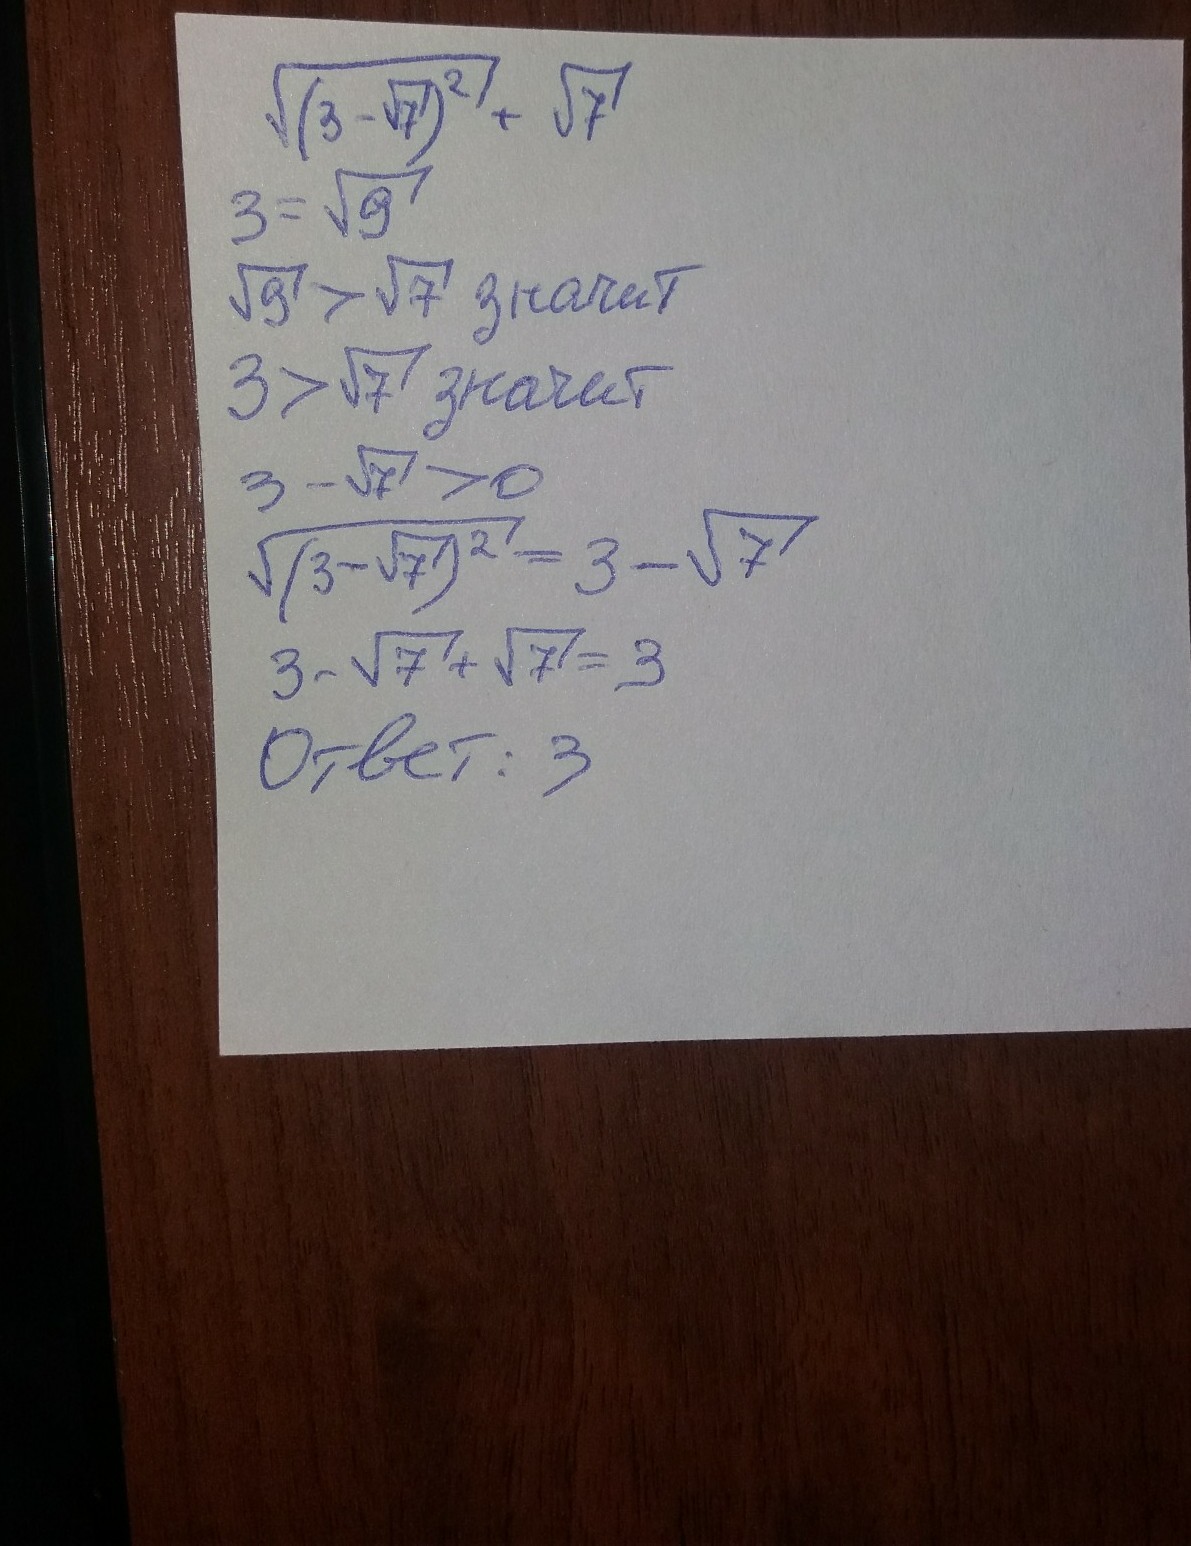 √(3-√7)² + √7
3 = √9
√9 > √7 значит
3 > √7 значит
3 - √7 > 0
√(3-√7)² = 3 - √7
3 - √7 + √7 = 3
Ответ: 3